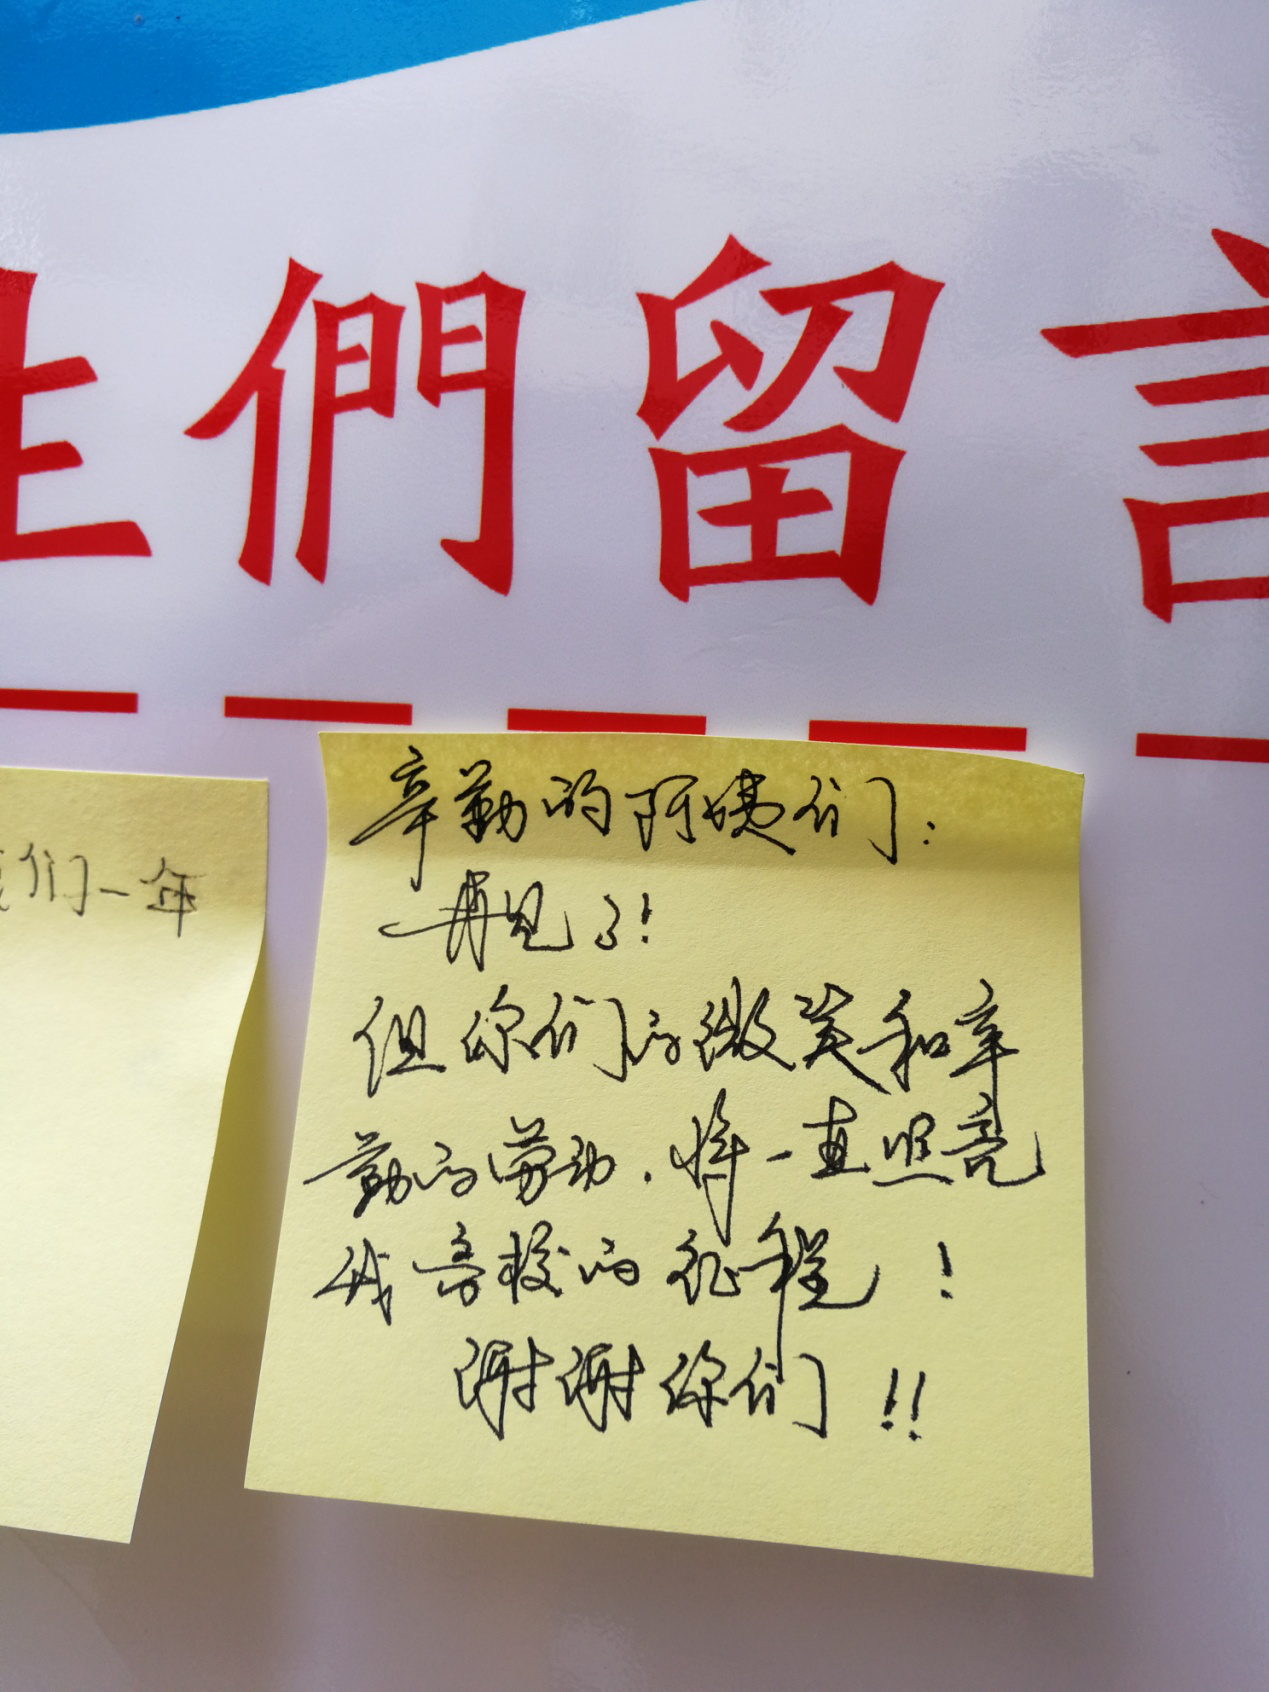 生們留言
们一年
辛勤的阿姨们:
再见了!
但你们的微笑和辛
勤的劳动.将一直照亮
我高校的征程!
谢谢你们!!